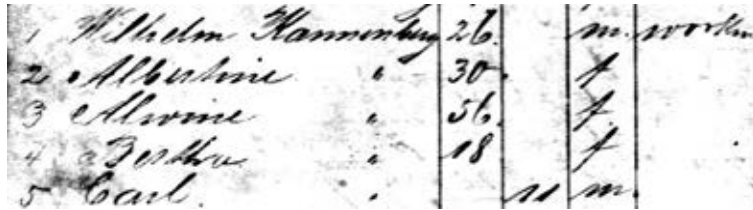 1 Wilhelm Kannenberg 26. m. work
2 Albertine " 30. f
3 Alwine " 56. f.
4 Bertha " 18 f
5 Carl. " 11 m.